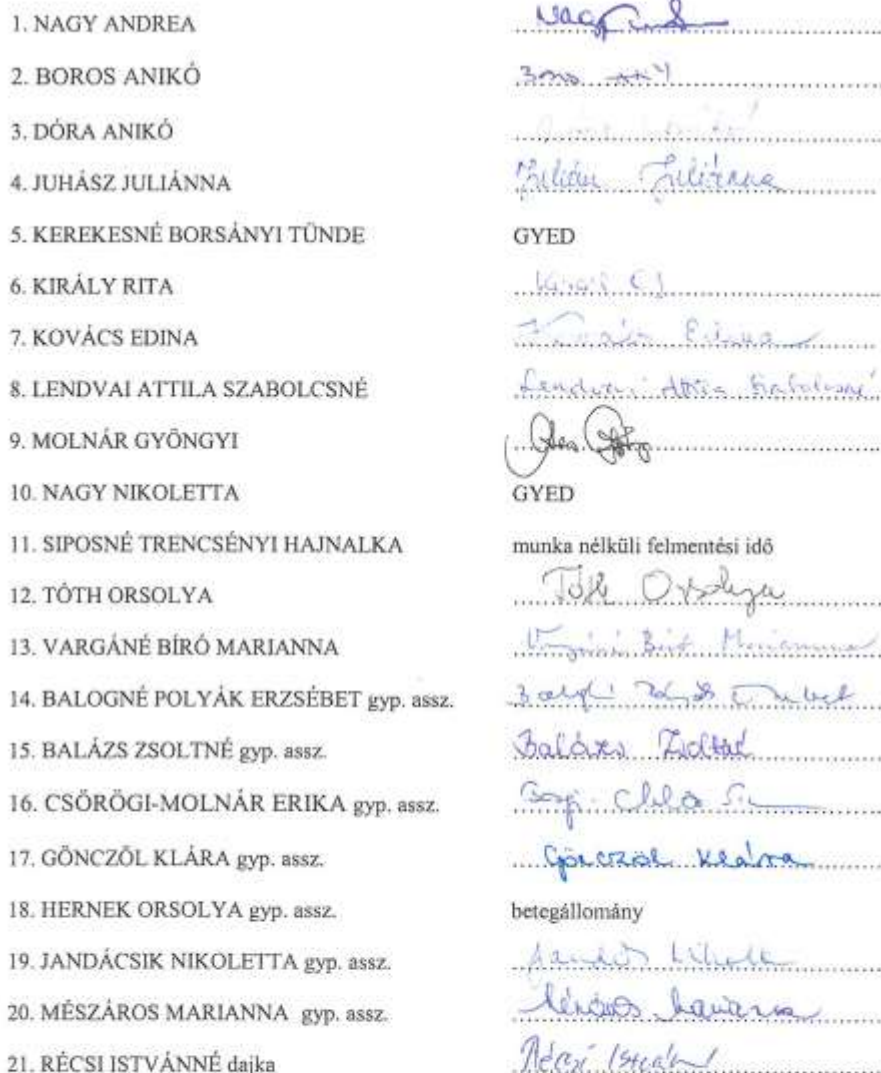 1. NAGY ANDREA Nagy
2. BOROS ANIKÓ
3. DÓRA ANIKÓ
4. JUHÁSZ JULIÁNNA Juhász Juliánna
5. KEREKESNÉ BORSÁNYI TÜNDE GYED
6. KIRÁLY RITA
7. KOVÁCS EDINA Kovács Edina
8. LENDVAI ATTILA SZABOLCSNÉ Lendvai Attila Szabolcsné
9. MOLNÁR GYÖNGYI
10. NAGY NIKOLETTA GYED
11. SIPOSNÉ TRENCSÉNYI HAJNALKA munka nélküli felmentési idő
12. TÓTH ORSOLYA Tóth Orsolya
13. VARGÁNÉ BÍRÓ MARIANNA Vargáné Bíró Marianna
14. BALOGNÉ POLYÁK ERZSÉBET gyp. assz.
15. BALÁZS ZSOLTNÉ gyp. assz. Balázs Zsoltné
16. CSÖRÖGI-MOLNÁR ERIKA gyp. assz.
17. GÖNCZÖL KLÁRA gyp. assz. Gönczöl Klára
18. HERNEK ORSOLYA gyp. assz. betegállomány
19. JANDÁCSIK NIKOLETTA gyp. assz.
20. MÉSZÁROS MARIANNA gyp. assz. Mészáros Marianna
21. RÉCSI ISTVÁNNÉ dajka Récsi Istvánné